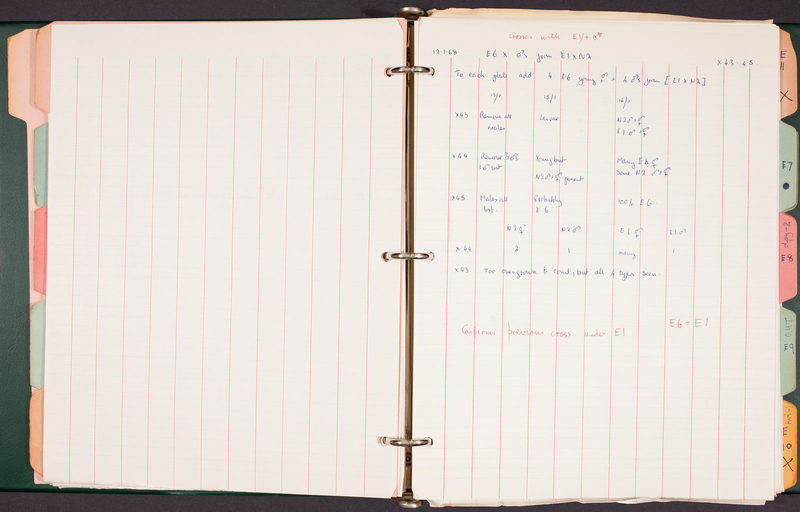 crosses with E1/+ ♂
12-1-68 E6 x ♂s from E1 x N2
x 43-45.
To each plate add 4 E6 young ⚥ + 4 ♂s from [E1 x N2]
13/1 15/1 16/1
x43 Remove all males Larvae N2 ♂, ⚥ E1 ♂, ⚥
x44 Remove 3♂ 1♂ lost Young but N2 ♂, ⚥ present Many E6 ⚥ Some N2 ♂, ⚥
x45 Males all lost. Probably E6 100% E6.
N2 ⚥ N2 ♂ E1 ⚥ E1 ♂
x44 2 1 many 1
x43 Too overgrown to count, but all 4 types seen.
Confirms previous cross under E1 E6 = E1
E
11
X
E7
dpy-2
E8
OUT
E9
E
10
X